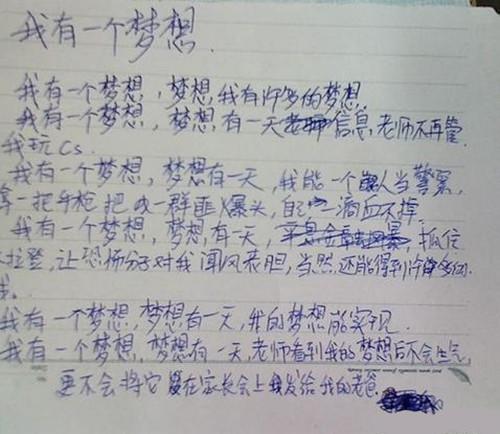 我有一个梦想.
我有一个梦想，梦想，我有许多的梦想.
我有一个梦想，梦想有一天信息老师不再管
我玩Cs.
我有一个梦想，梦想有一天，我能一个人当警察，
拿一把手枪把一群匪爆头，自己一滴血不掉.
我有一个梦想，梦想，有一天，抓住
拉登，让恐怖分子对我闻风丧胆，当然，还能得到许多的
我有一个梦想，梦想有一天，我的梦想能实现.
我有一个梦想，梦想有一天，老师看到我的梦想后不会生气，
更不会将它在家长会上发给我的老爸.